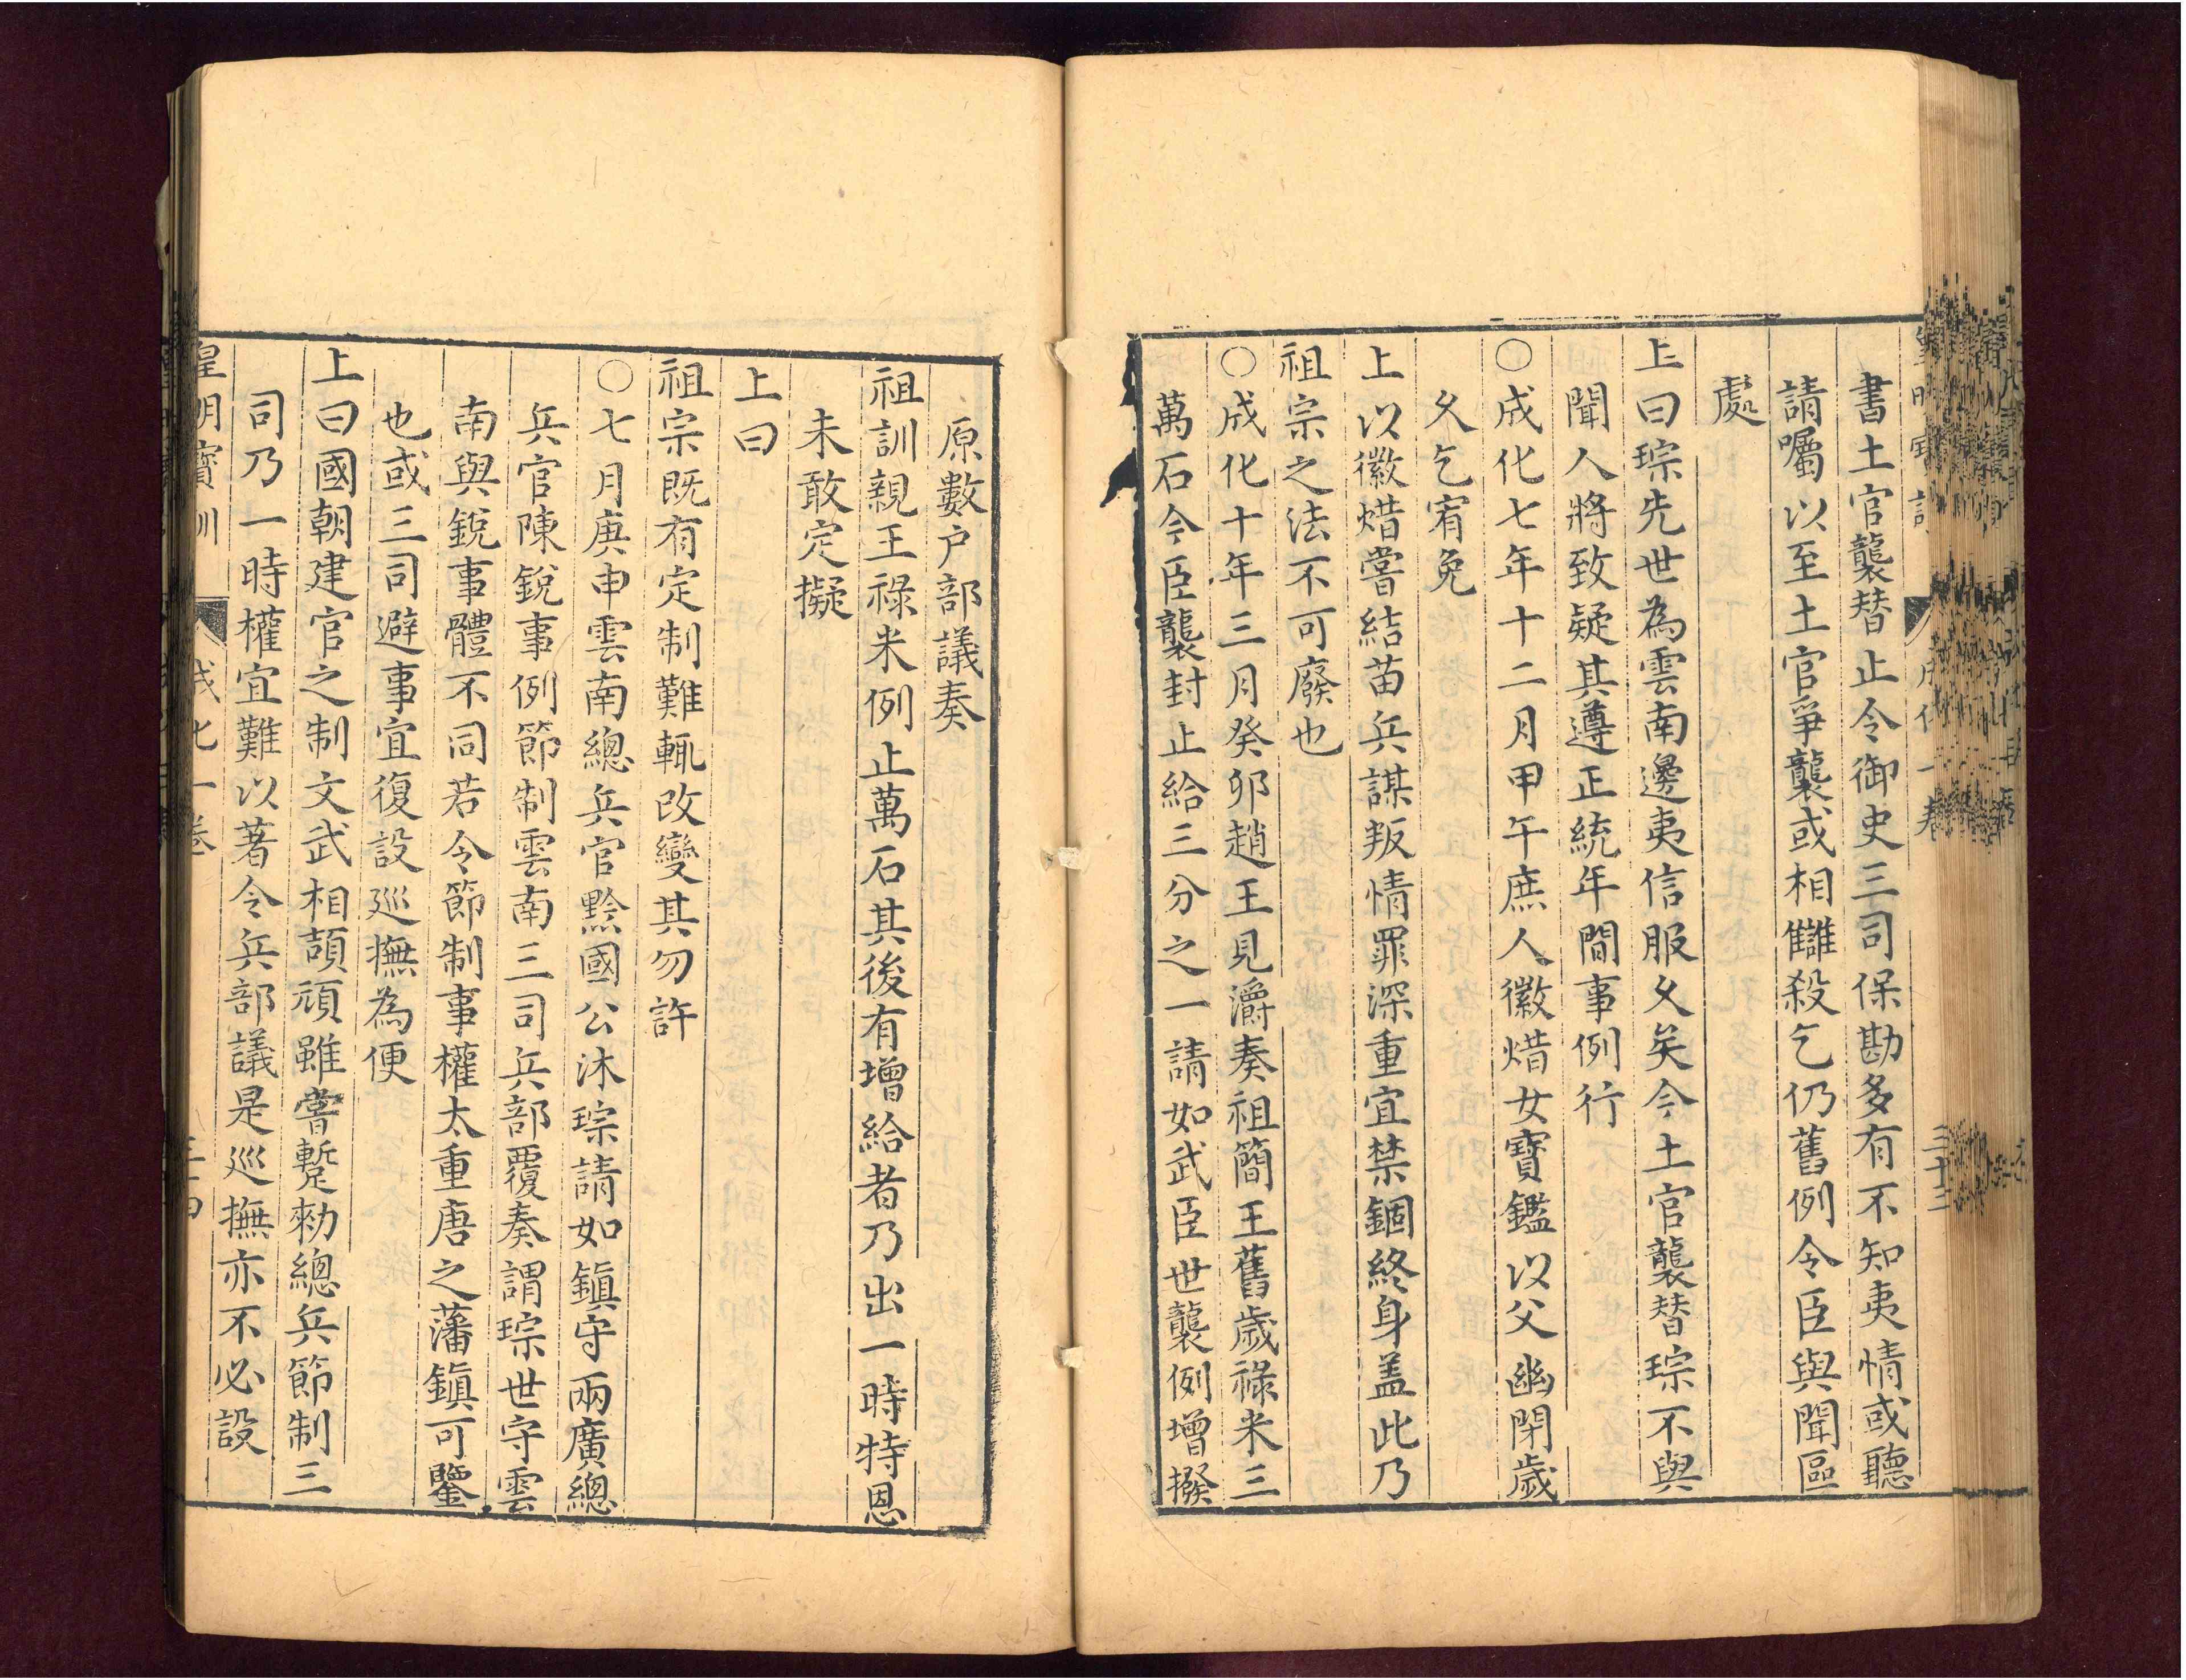 書土官襲替止令御史三司保勘多有不知夷情或聽
請囑以至土官爭襲或相讎殺乞仍舊例令臣與聞區
處
上曰琮先世為雲南邊夷信服乆矣今土官襲替琮不與
聞人將致疑其遵正統年間事例行
○成化七年十二月甲午庶人徽焟女寶鑑以父幽閉歲
乆乞宥免
上以徽焟嘗結苗兵謀叛情罪深重宜禁錮終身盖此乃
祖宗之法不可廢也
○成化十年三月癸卯趙王見灂奏祖簡王舊歲祿米三
萬石今臣襲封止給三分之一請如武臣世襲例增撥
原數户部議奏
祖訓親王祿米例止萬石其後有增給者乃出一時特恩
未敢定擬
上曰
祖宗既有定制難輒改變其勿許
○七月庚申雲南總兵官黔國公沐琮請如鎭守兩廣總
兵官陳銳事例節制雲南三司兵部覆奏謂琮世守雲
南與銳事體不同若令節制事權太重唐之藩鎭可鑒
也或三司避事宜復設巡撫為便
上曰國朝建官之制文武相頡頏雖嘗蹔勑總兵節制三
司乃一時權宜難以著令兵部議是巡撫亦不必設
皇明寶訓 成化一卷 三十四